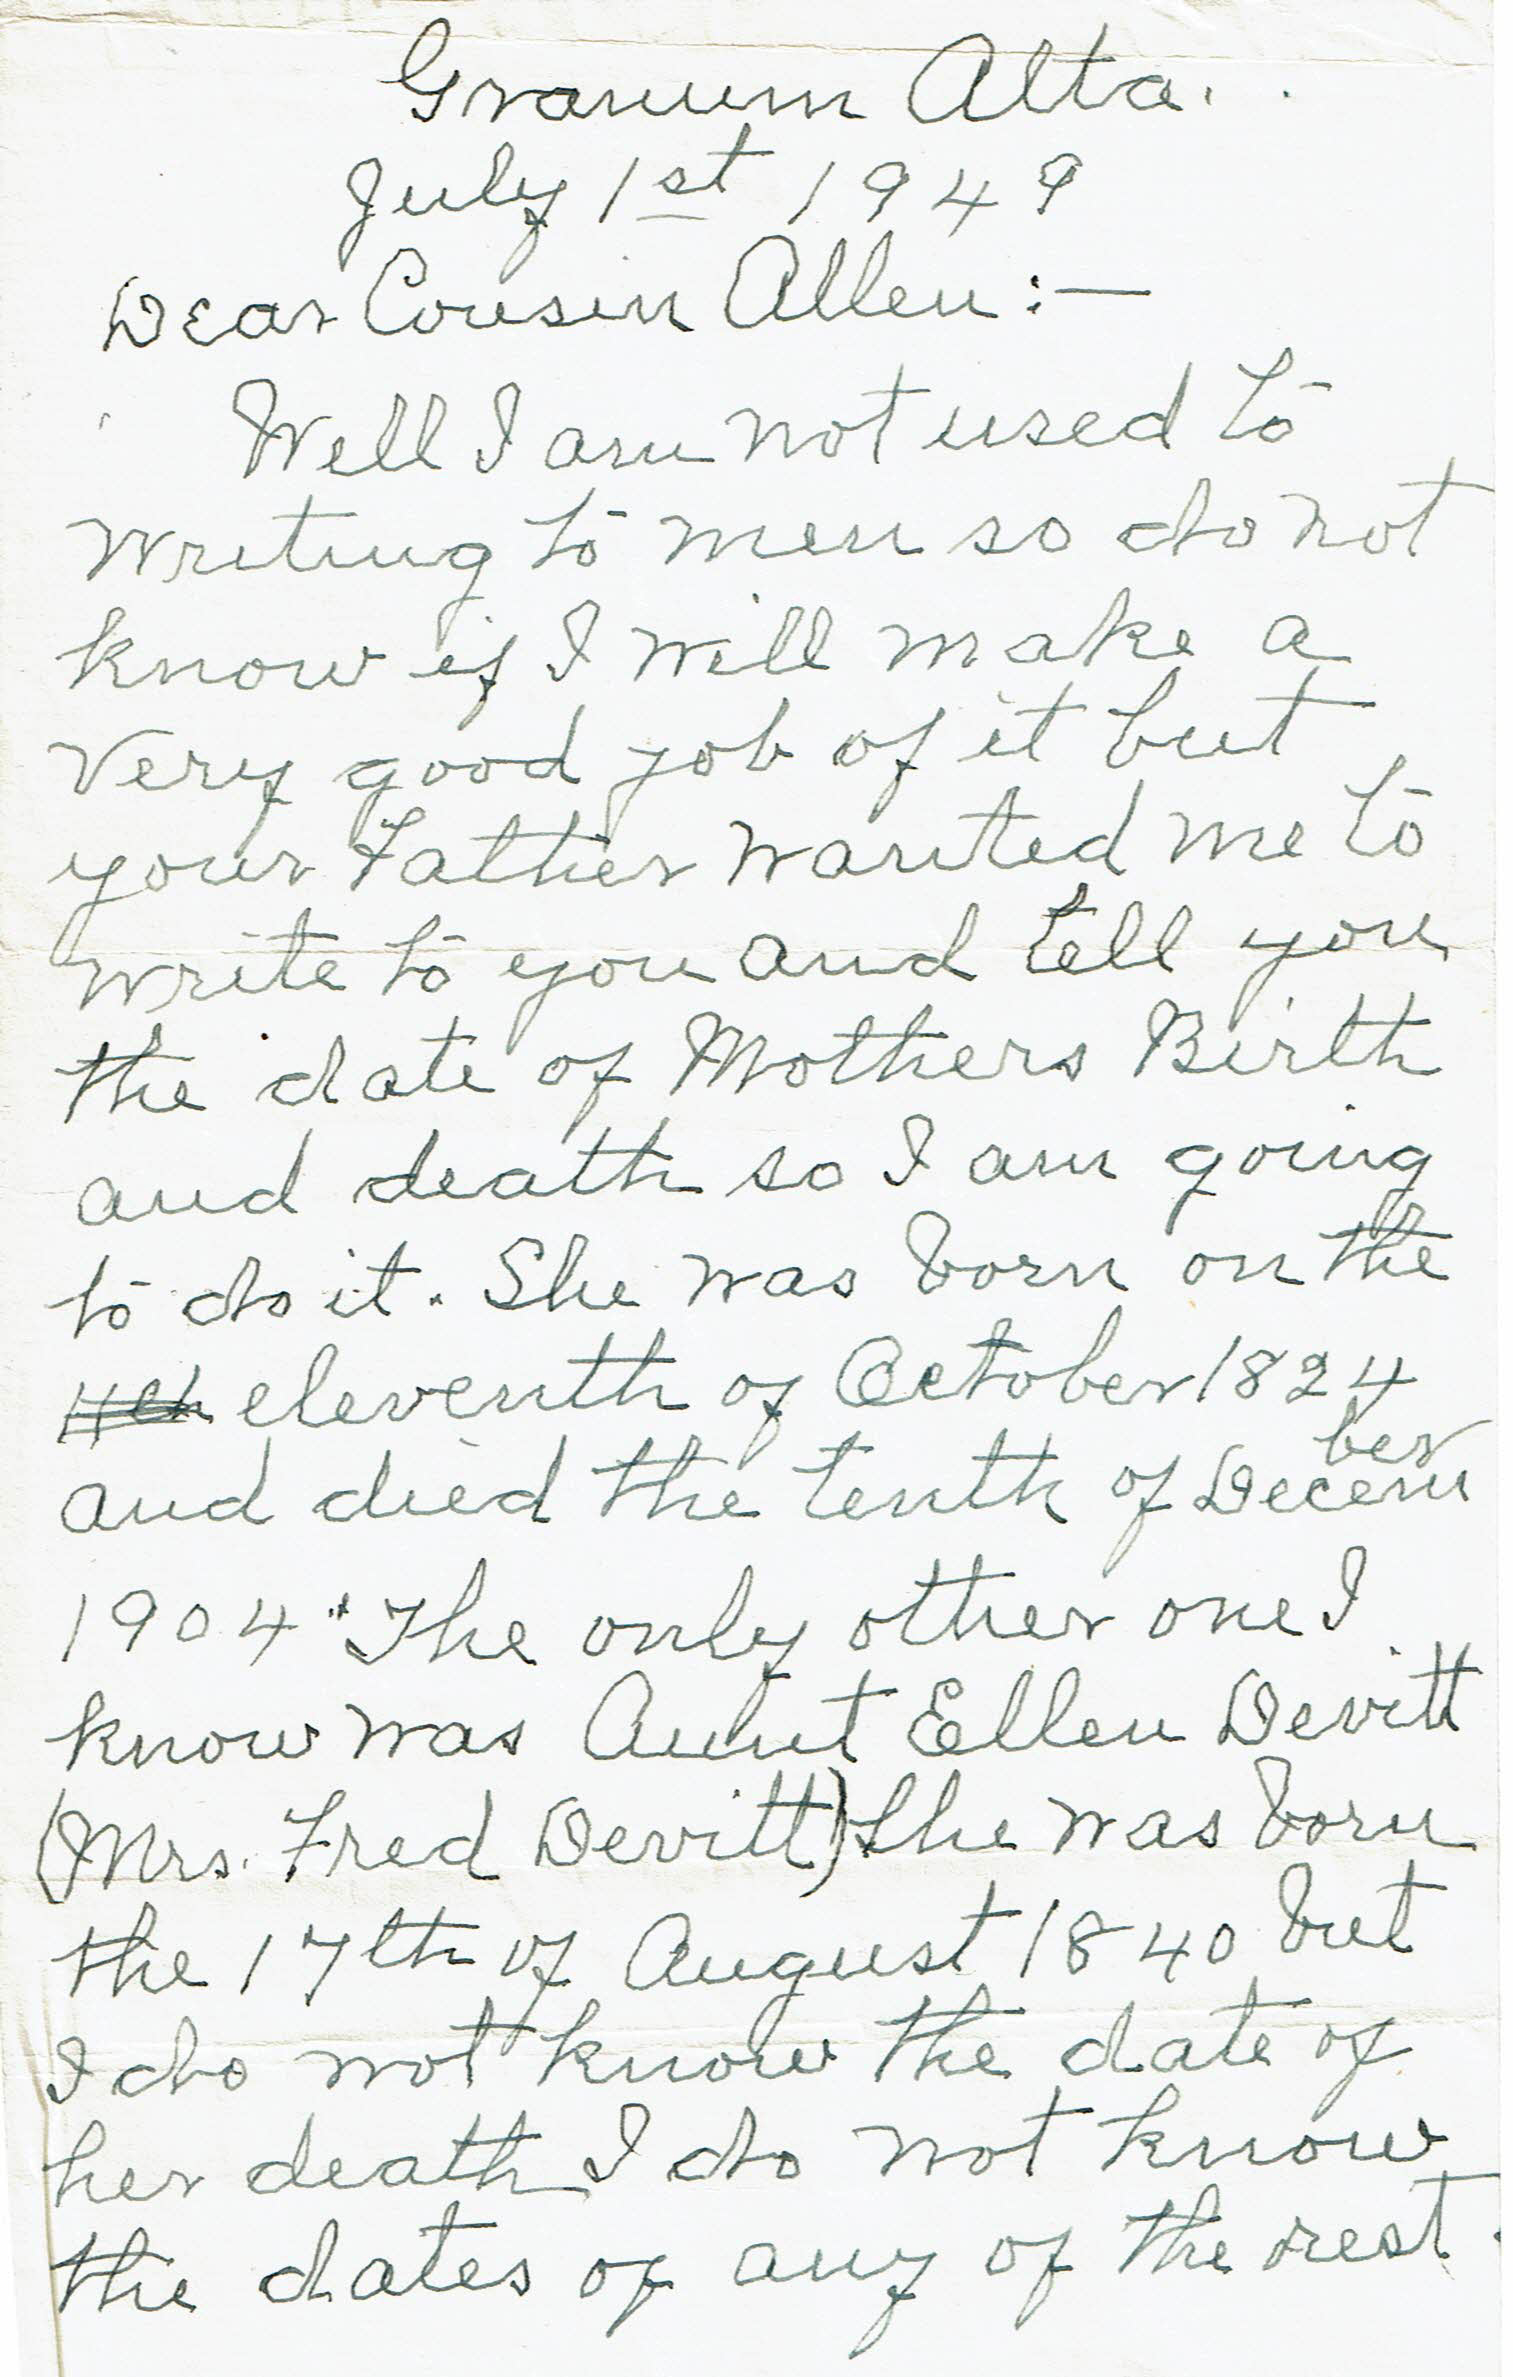 Granum Alta.
July 1st 1949
Dear Cousin Allen:—
Well I am not used to
writing to men so do not
know if I will make a
very good job of it but
your Father wanted me to
write to you and tell you
the date of Mothers Birth
and death so I am going
to do it. She was born on the
eleventh of October 1824
and died the tenth of December
1904. The only other one I
know was Aunt Ellen Devitt
(Mrs. Fred Devitt) She was born
the 17th of August 1840 but
I do not know the date of
her death I do not know
the dates of any of the rest.